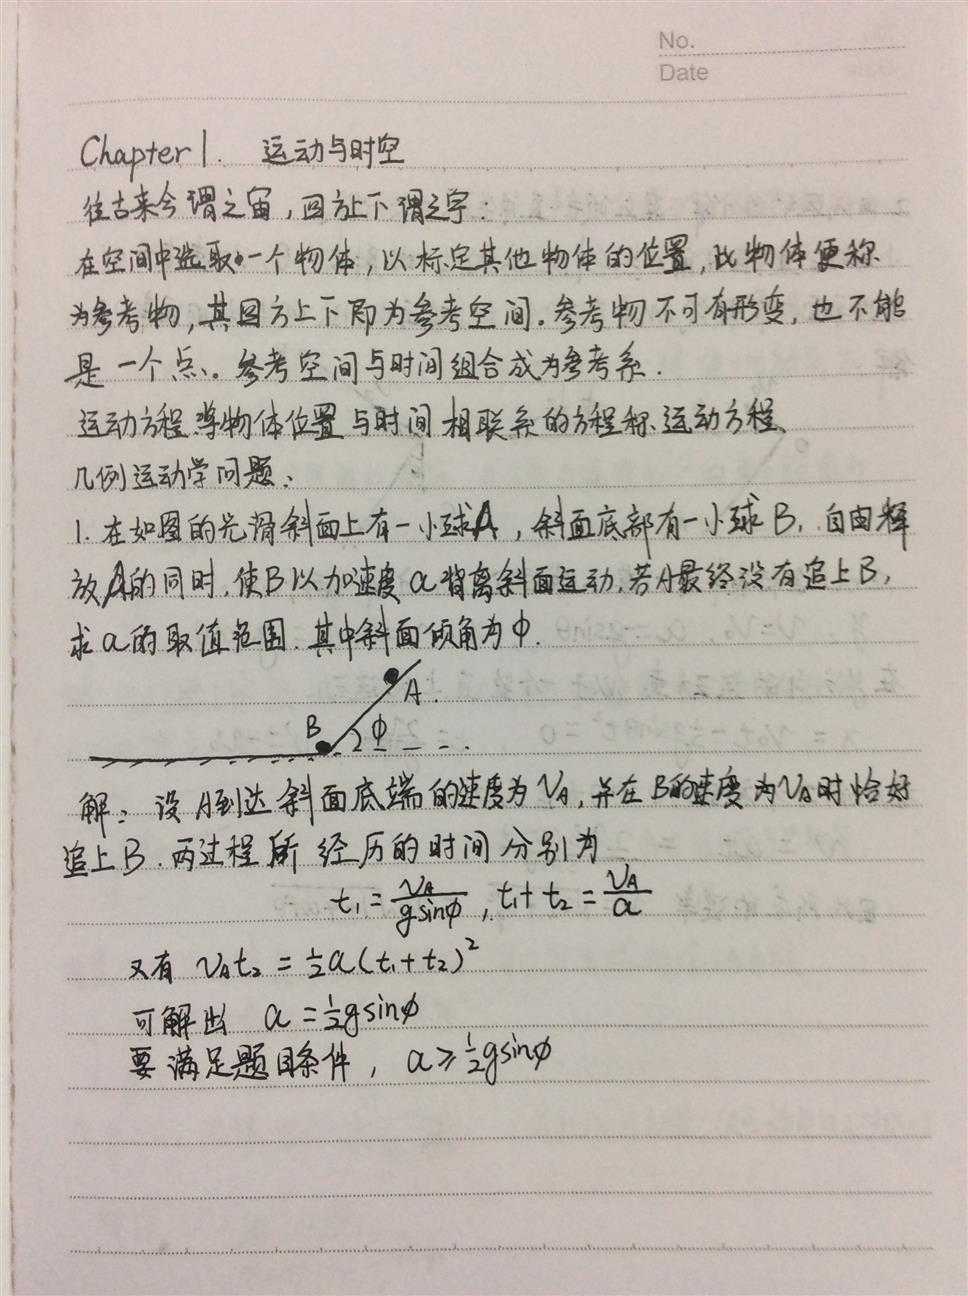 No.
Date
Chapter 1. 运动与时空
往古来今谓之宙，四方上下谓之宇：
在空间中选取一个物体，以标定其他物体的位置，此物体便称
为参考物，其四方上下即为参考空间。参考物不可有形变，也不能
是一个点。参考空间与时间组合成为参考系.
运动方程：将物体位置与时间相联系的方程称运动方程、
几例运动学问题：
1. 在如图的光滑斜面上有一小球A，斜面底部有一小球B，自由释
放A的同时，使B以加速度a背离斜面运动，若A最终没有追上B，
求a的取值范围. 其中斜面倾角为φ.
A.
B
φ
解：设A到达斜面底端的速度为VA，并在B的速度为VA时恰好
追上B. 两过程所经历的时间分别为
t₁ = VA/gsinφ , t₁+t₂ = VA/a
又有 VAt₂ = ½a(t₁+t₂)²
可解出 a = ½gsinφ
要满足题目条件，a ≥ ½gsinφ